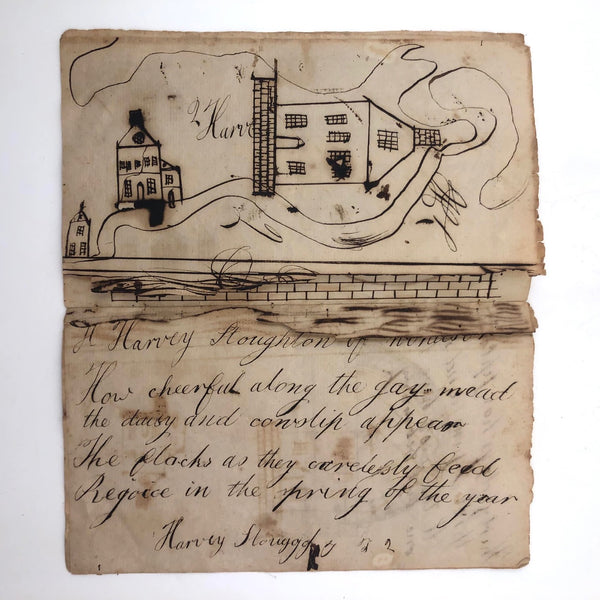 Harve
H Harvey Stoughton of Windsor
How cheerful along the gay mead
the daisy and cowslip appear
The flocks as they carelesly feed
Rejoice in the spring of the year
Harvey